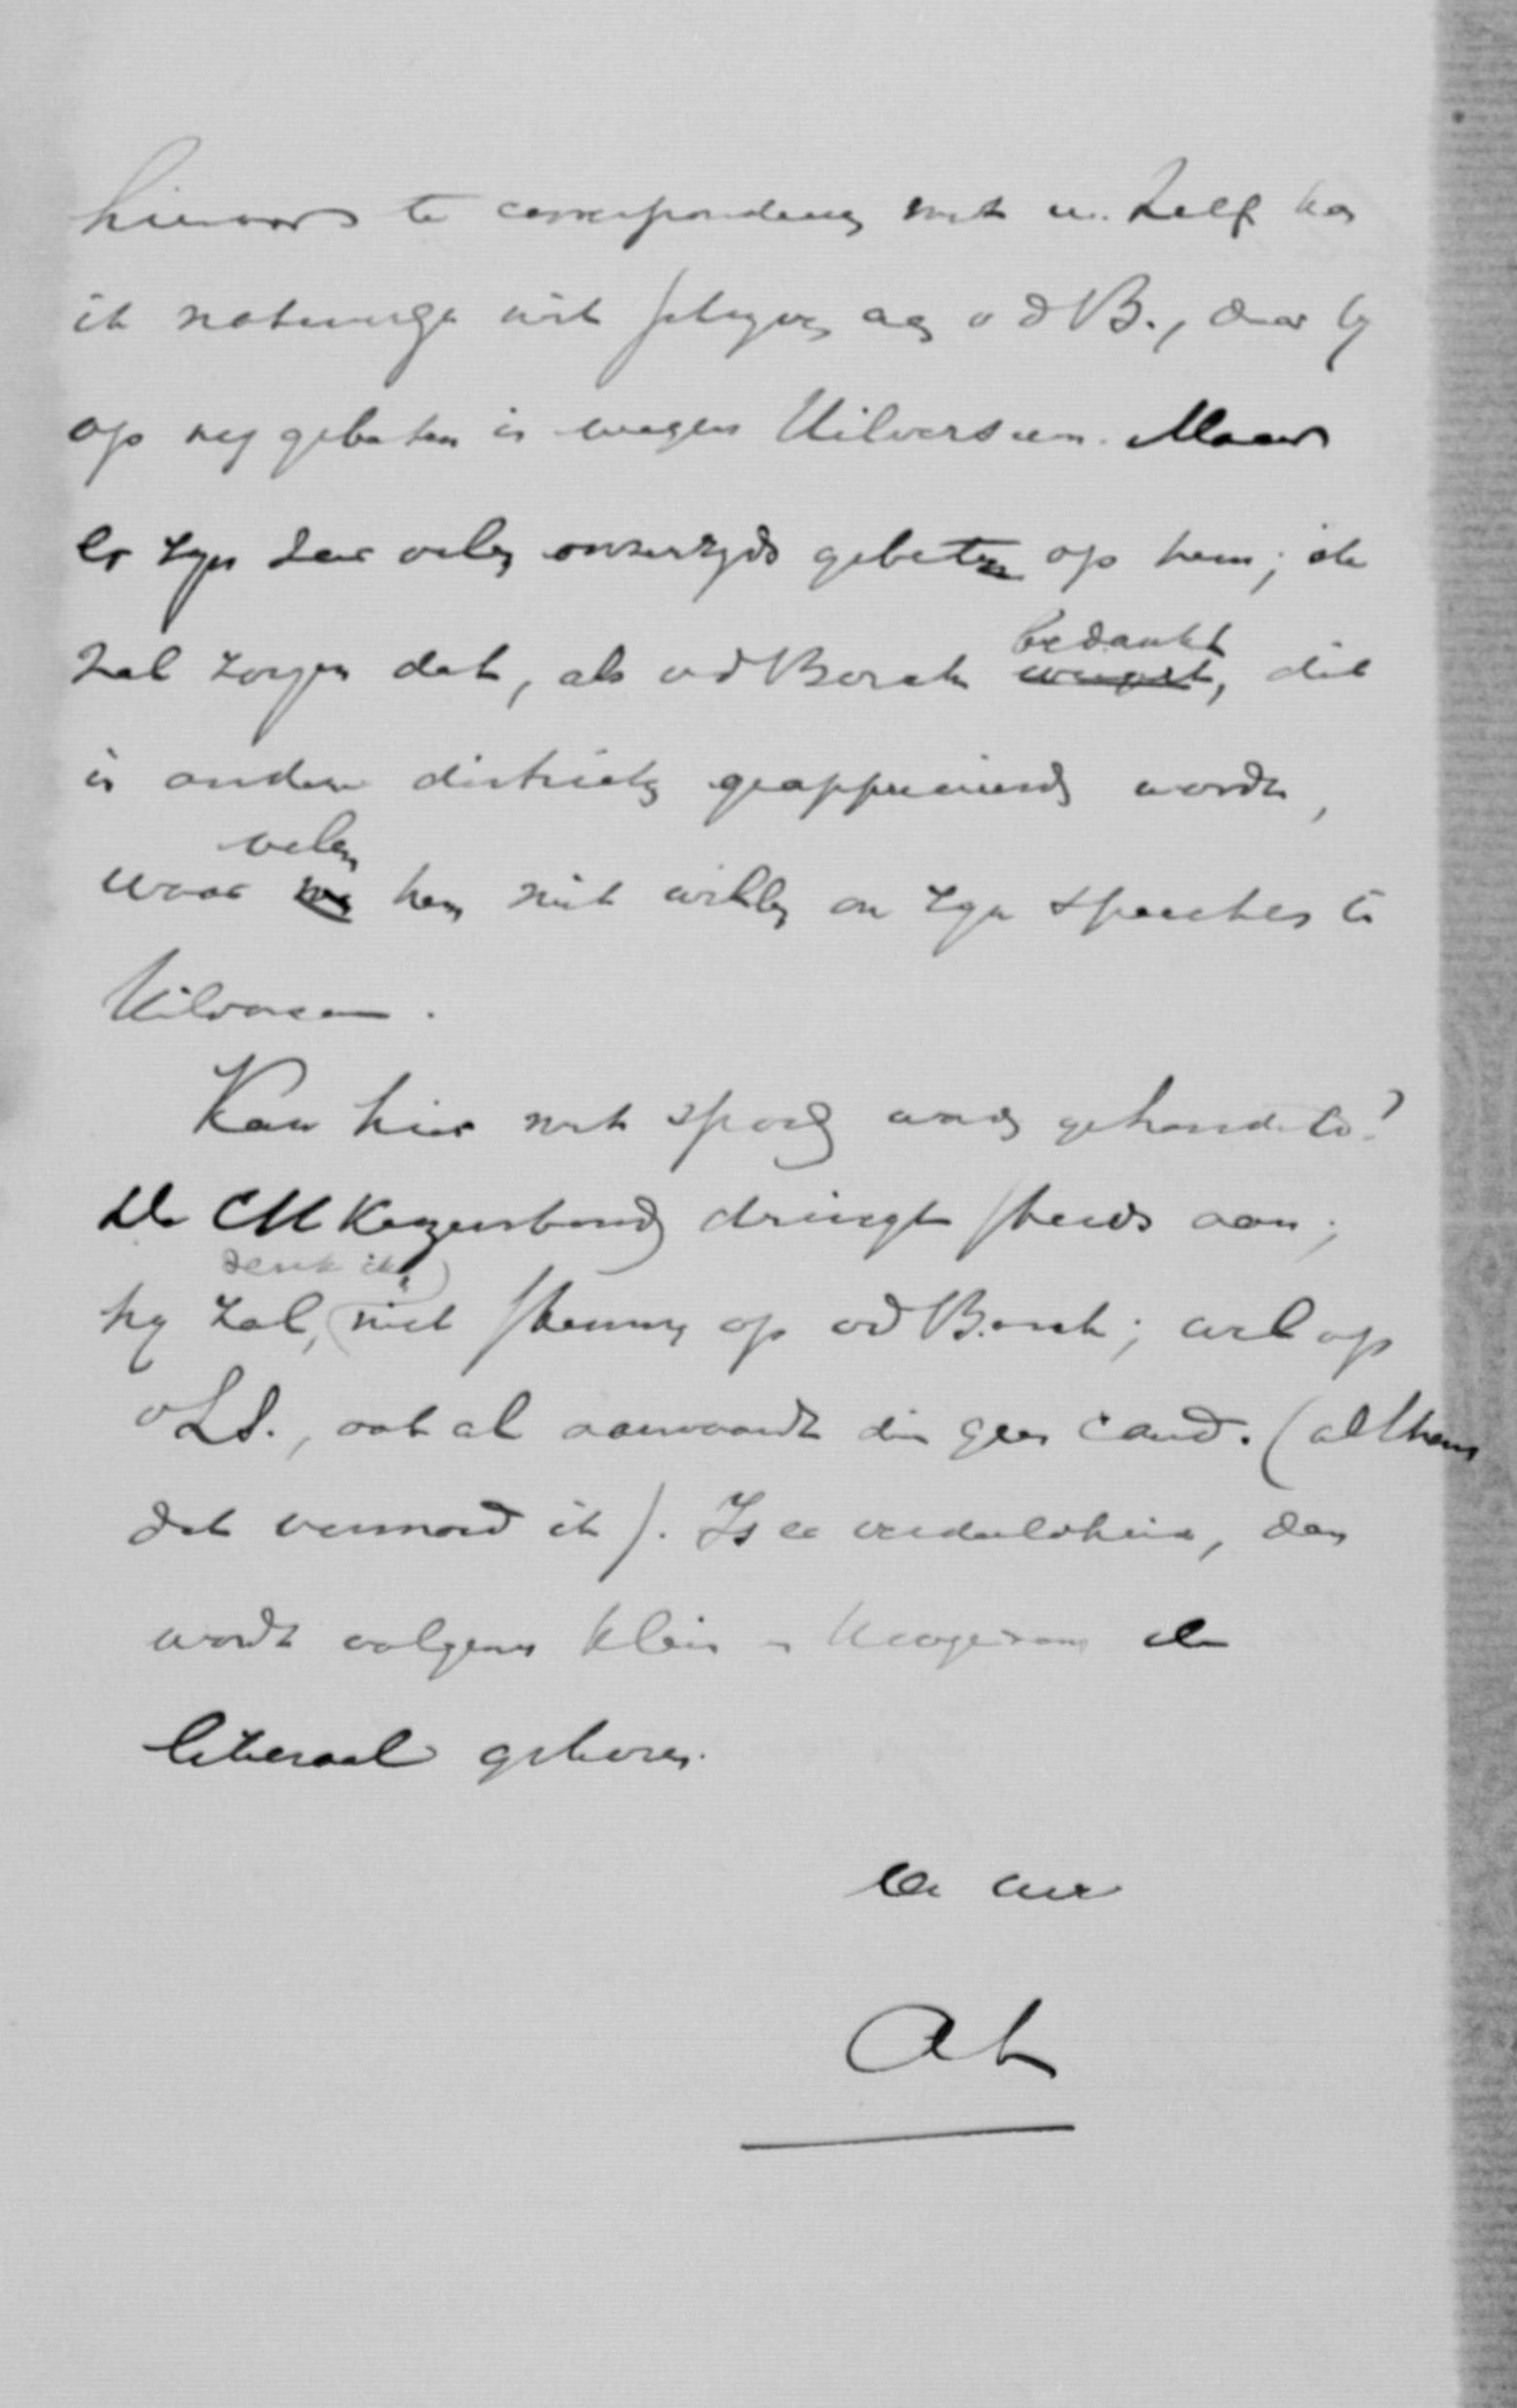 hierover te correspondeeren met u. Zelf kan
ik natuurlijk niet schryven aan v d B., daar hy
op my gebeten is wegens Hilversum. Maar
er zyn zeer velen onzerzyds gebeten op hem; ik
zal zorgen dat, als v d Borch bedankt, dit
in andere districten geapprecieerd wordt,
waar velen hem niet willen om zyn speeches te
Hilversum.
Kan hier met spoed worden gehandeld?
De CH Kiezersbond dringt steeds aan;
hy zal, denk ik, niet stemmen op v d Borch; wel op
v L S., ook al aanvaardt die geen cand. (althans
dat vermoed ik). Is er verdeeldheid, dan
wordt volgens Klein en Hoogenraad de
liberaal gekozen.